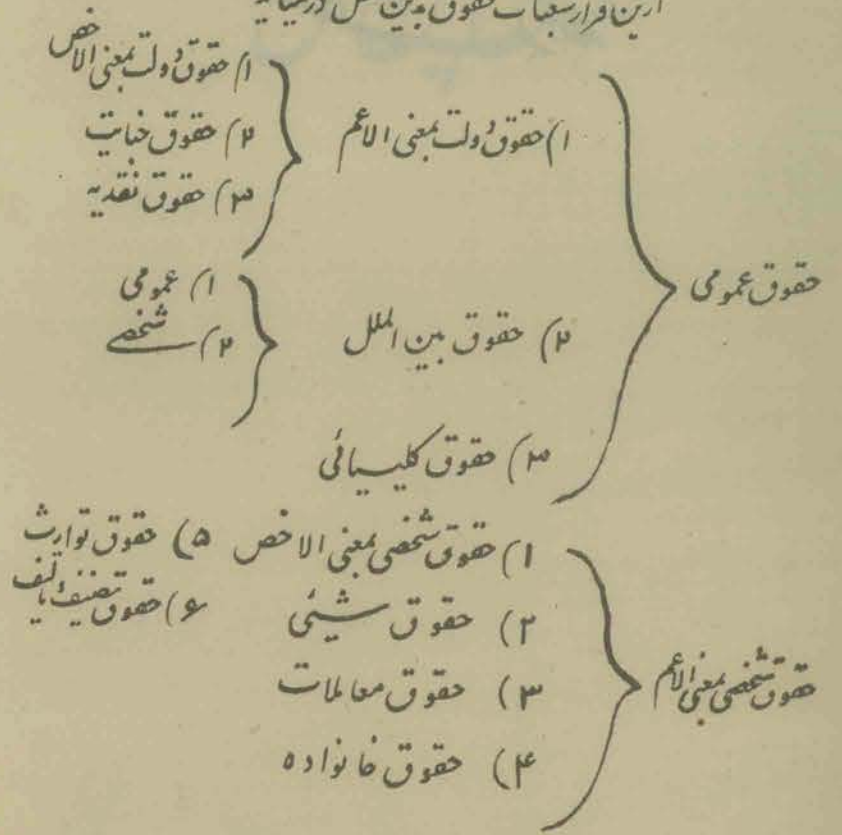 ازین قرار شعبات حقوق بدین شکل درمیآید
حقوق عمومی
۱) حقوق دولت بمعنی الاعم
۱) حقوق دولت بمعنی الاخص
۲) حقوق جنایت
۳) حقوق نقدیه
۲) حقوق بین الملل
۱) عمومی
۲) شخصی
۳) حقوق کلیسیائی
حقوق شخصی بمعنی الاعم
۱) حقوق شخصی بمعنی الاخص
۲) حقوق شیئی
۳) حقوق معاملات
۴) حقوق خانواده
۵) حقوق توارث
۶) حقوق تصنیف یا تألیف